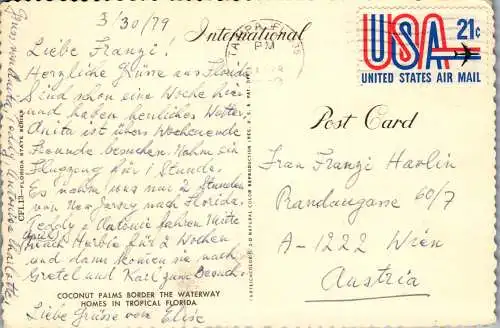 3/30/79
International
Liebe Franzi.
Herzliche Grüsse aus Florida
Sind schon eine Woche hier
und haben herrliches Wetter
Anita ist übers Wochenende
Freunde besuchen. Nahm ein
Flugzeug für 1 Stunde.
Es nahm uns nur 2 Stunden
von New Jersey nach Florida.
Teddy + Antonie fahren Mitte
April nach Herbie für 2 Wochen
und dann kommen sie nach
Gretel und Karl zum Besuch.
Liebe Grüsse von Elise
Anita, Teddy
COCONUT PALMS BORDER THE WATERWAY
HOMES IN TROPICAL FLORIDA
CFL13—FLORIDA STATE SERIES
TAMPA, FL
PM
USA 21c
UNITED STATES AIR MAIL
Post Card
Frau Franzi Havlin
Randaugasse 60/7
A-1222 Wien
Austria